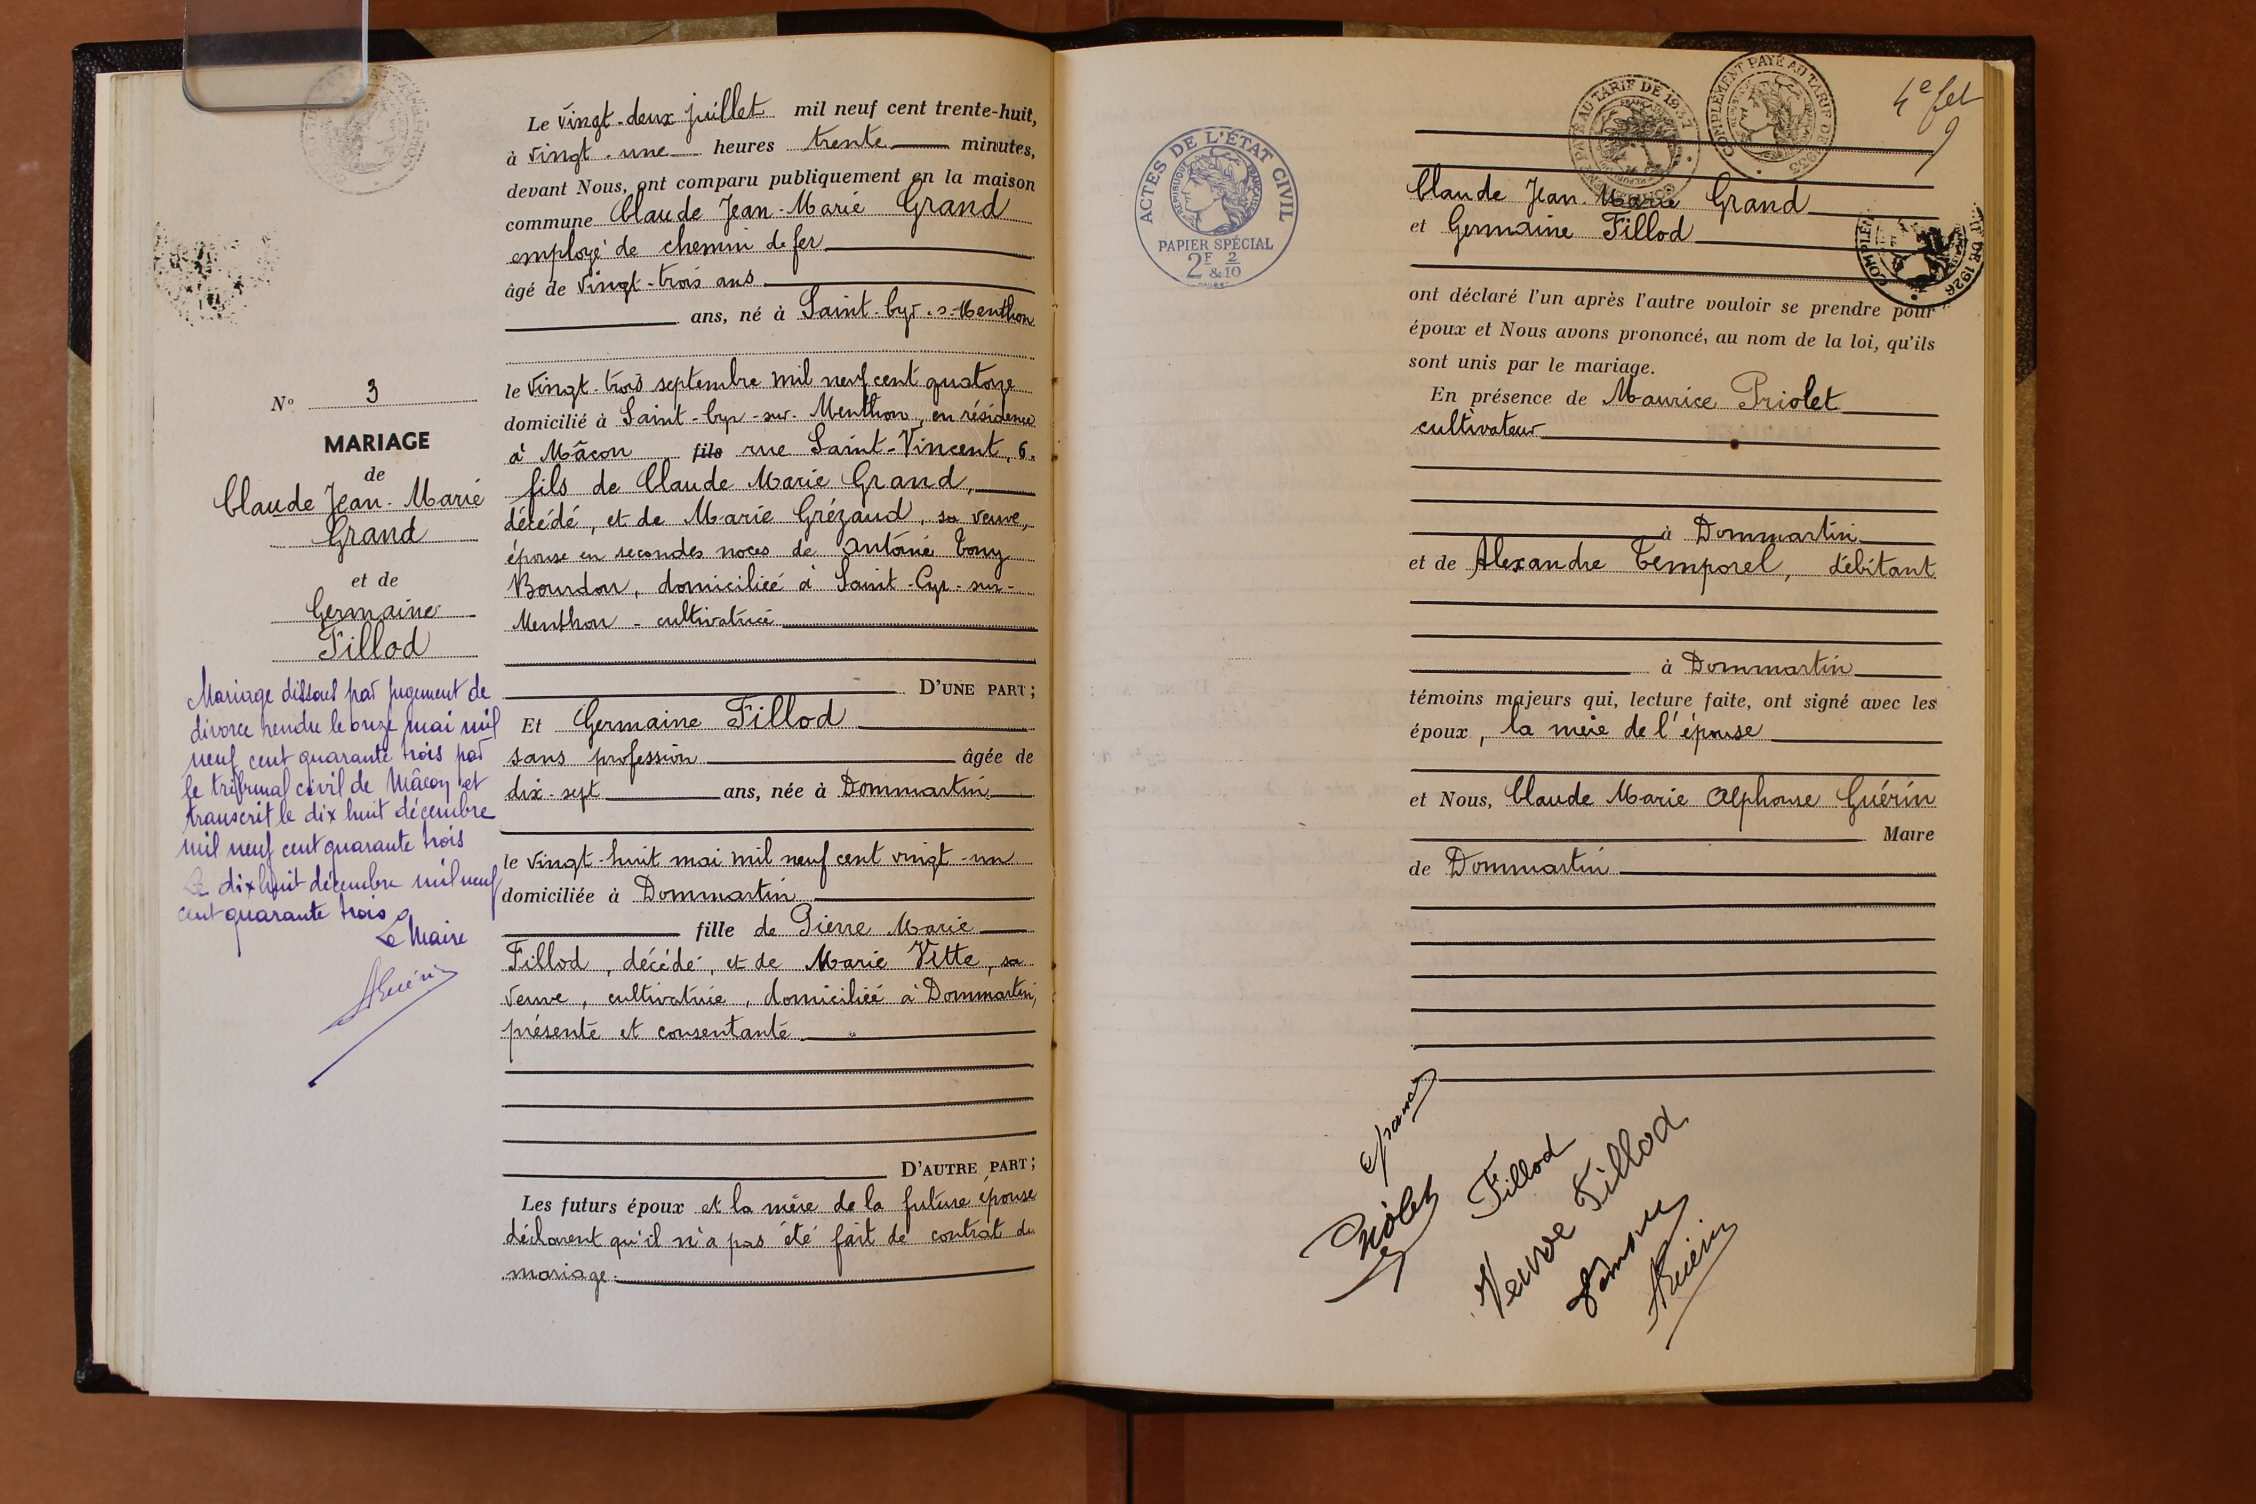 N° 3
MARIAGE
de
Claude Jean-Marie
Grand
et de
Germaine
Fillod
Mariage dissous par jugement de
divorce rendu le onze mai mil
neuf cent quarante trois par
le tribunal civil de Mâcon et
transcrit le dix huit décembre
mil neuf cent quarante trois
Le dix huit décembre mil neuf
cent quarante trois
Le Maire
AGuérin
Le vingt-deux juillet mil neuf cent trente-huit,
à vingt-une heures trente minutes,
devant Nous, ont comparu publiquement en la maison
commune Claude Jean-Marie Grand
employé de chemin de fer
âgé de vingt-trois ans
ans, né à Saint-Cyr-s-Menthon
le vingt-trois septembre mil neuf cent quatorze
domicilié à Saint-Cyr-sur-Menthon, en résidence
à Mâcon fils rue Saint-Vincent, 6.
fils de Claude Marie Grand,
décédé, et de Marie Grézaud, sa veuve,
épouse en secondes noces de Antoine Tony
Bourdon, domiciliée à Saint-Cyr-sur-
Menthon - cultivatrice
D'UNE PART;
Et Germaine Fillod
sans profession âgée de
dix-sept ans, née à Dommartin
le vingt-huit mai mil neuf cent vingt-un
domiciliée à Dommartin
fille de Pierre Marie
Fillod, décédé, et de Marie Vitte, sa
veuve, cultivatrice, domiciliée à Dommartin,
présente et consentante
D'AUTRE PART;
Les futurs époux et la mère de la future épouse
déclarent qu'il n'a pas été fait de contrat de
mariage.
ACTES DE L'ÉTAT CIVIL
RÉPUBLIQUE FRANÇAISE
PAPIER SPÉCIAL
2F & 2/10
COMPLÉMENT PAYÉ AU TARIF DE 1935
4e fet
9
Claude Jean-Marie Grand
et Germaine Fillod
ont déclaré l'un après l'autre vouloir se prendre pour
époux et Nous avons prononcé, au nom de la loi, qu'ils
sont unis par le mariage.
En présence de Maurice Priolet
cultivateur
à Dommartin
et de Alexandre Temporel, débitant
à Dommartin
témoins majeurs qui, lecture faite, ont signé avec les
époux, la mère de l'épouse
et Nous, Claude Marie Alphonse Guérin
Maire
de Dommartin
Priolet
Fillod
Veuve Fillod
AGuérin